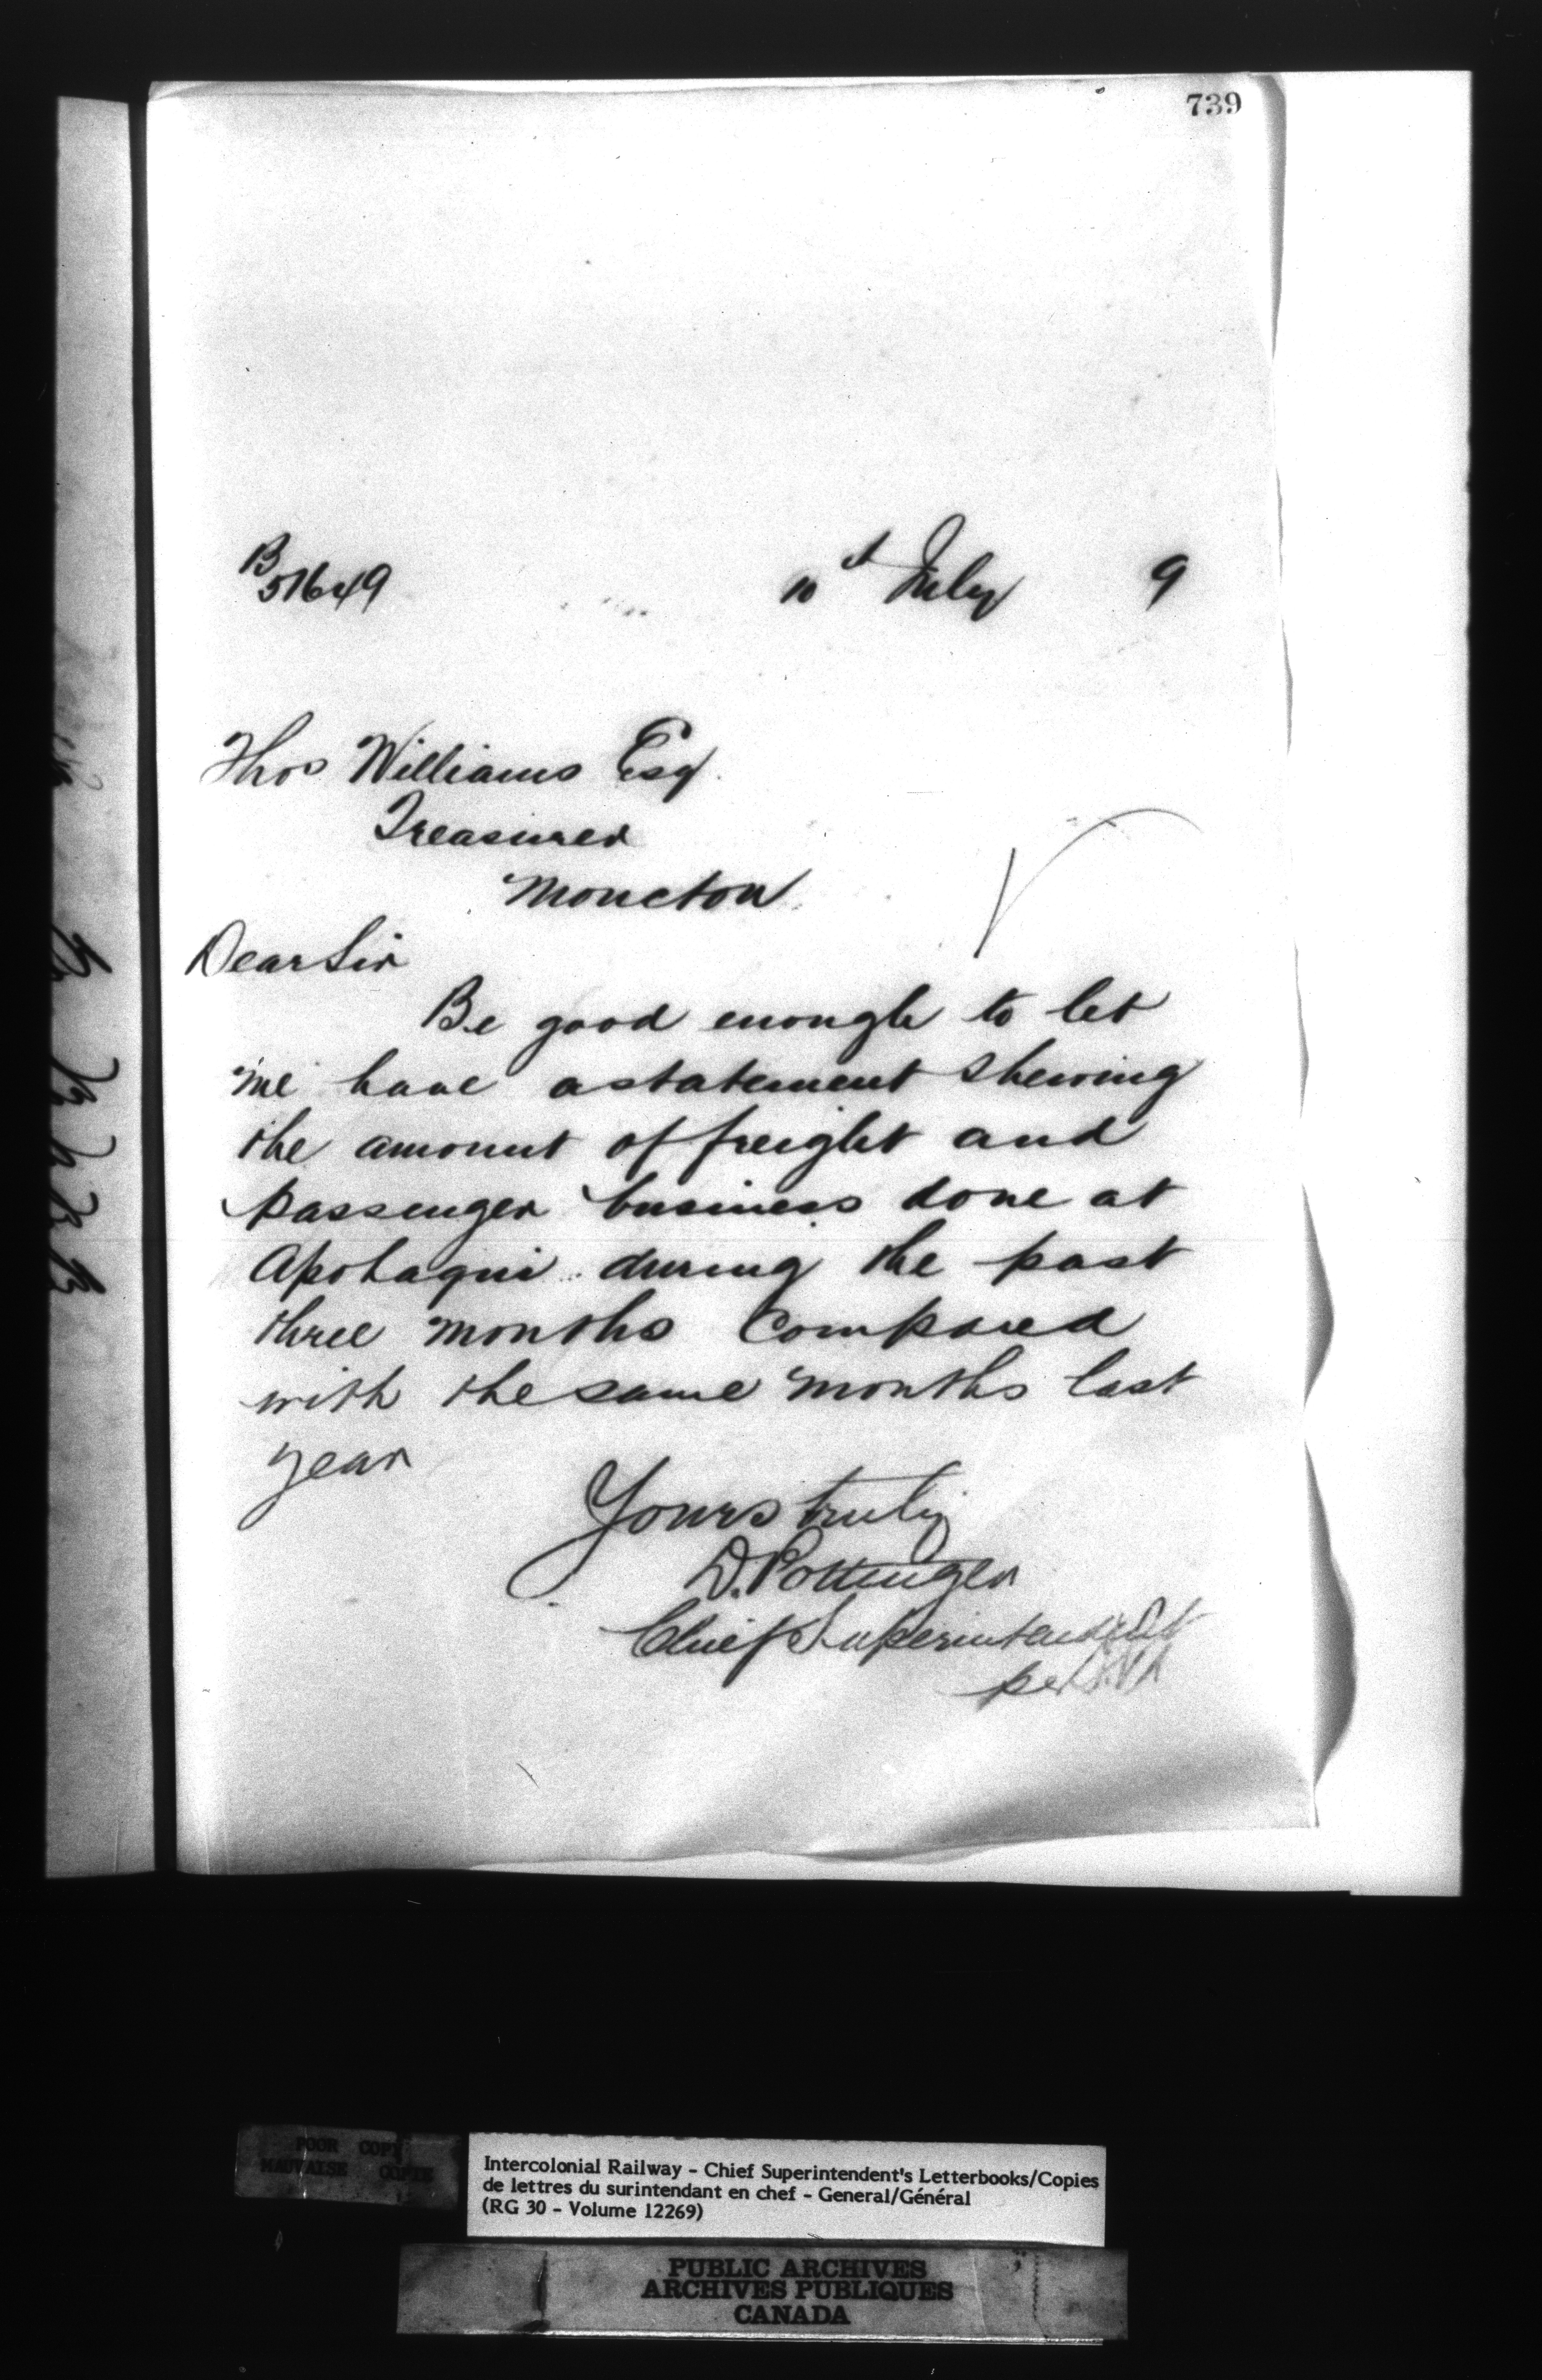 739
B
51649
10th July 9
Thos Williams Esq.
Treasurer
Moncton.
Dear Sir
Be good enough to let
me have a statement shewing
the amount of freight and
passenger business done at
Apohaqui during the past
three months compared
with the same months last
year
Yours truly
D. Pottinger
Chief Superintendent
per
POOR COPY
MAUVAISE COPIE
Intercolonial Railway - Chief Superintendent's Letterbooks/Copies
de lettres du surintendant en chef - General/Général
(RG 30 - Volume 12269)
PUBLIC ARCHIVES
ARCHIVES PUBLIQUES
CANADA